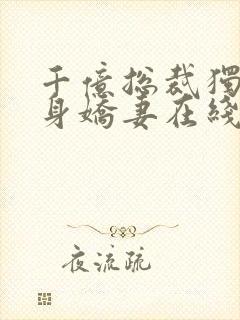 千億総裁獨
身嬌妻在綫
夜流疏